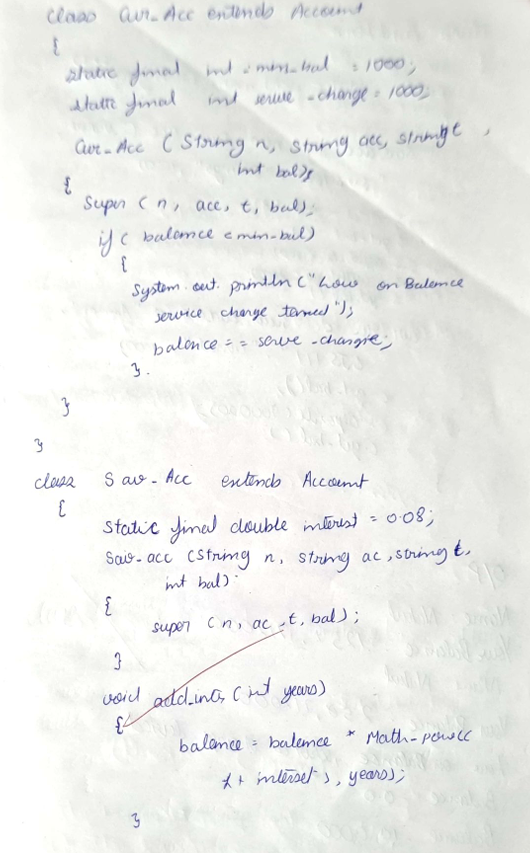 class Cur-Acc extends Account
{
static final int min-bal = 1000;
static final int serve-change = 1000;
Cur-Acc (String n, string acc, string t,
int bal);
{
Super (n, acc, t, bal);
if ( balance < min-bal)
{
System.out.println ("Low on Balance
service charge
balance = = serve-change;
}.
}
}
class Sav-Acc extends Account
{
static final double interist = 0.08;
Sav-acc (String n, string ac, string t,
int bal).
{
super (n, ac, t, bal);
}
void add-int, (int years)
{
balance = balance * Math-pow((
1+ interset), years);
}